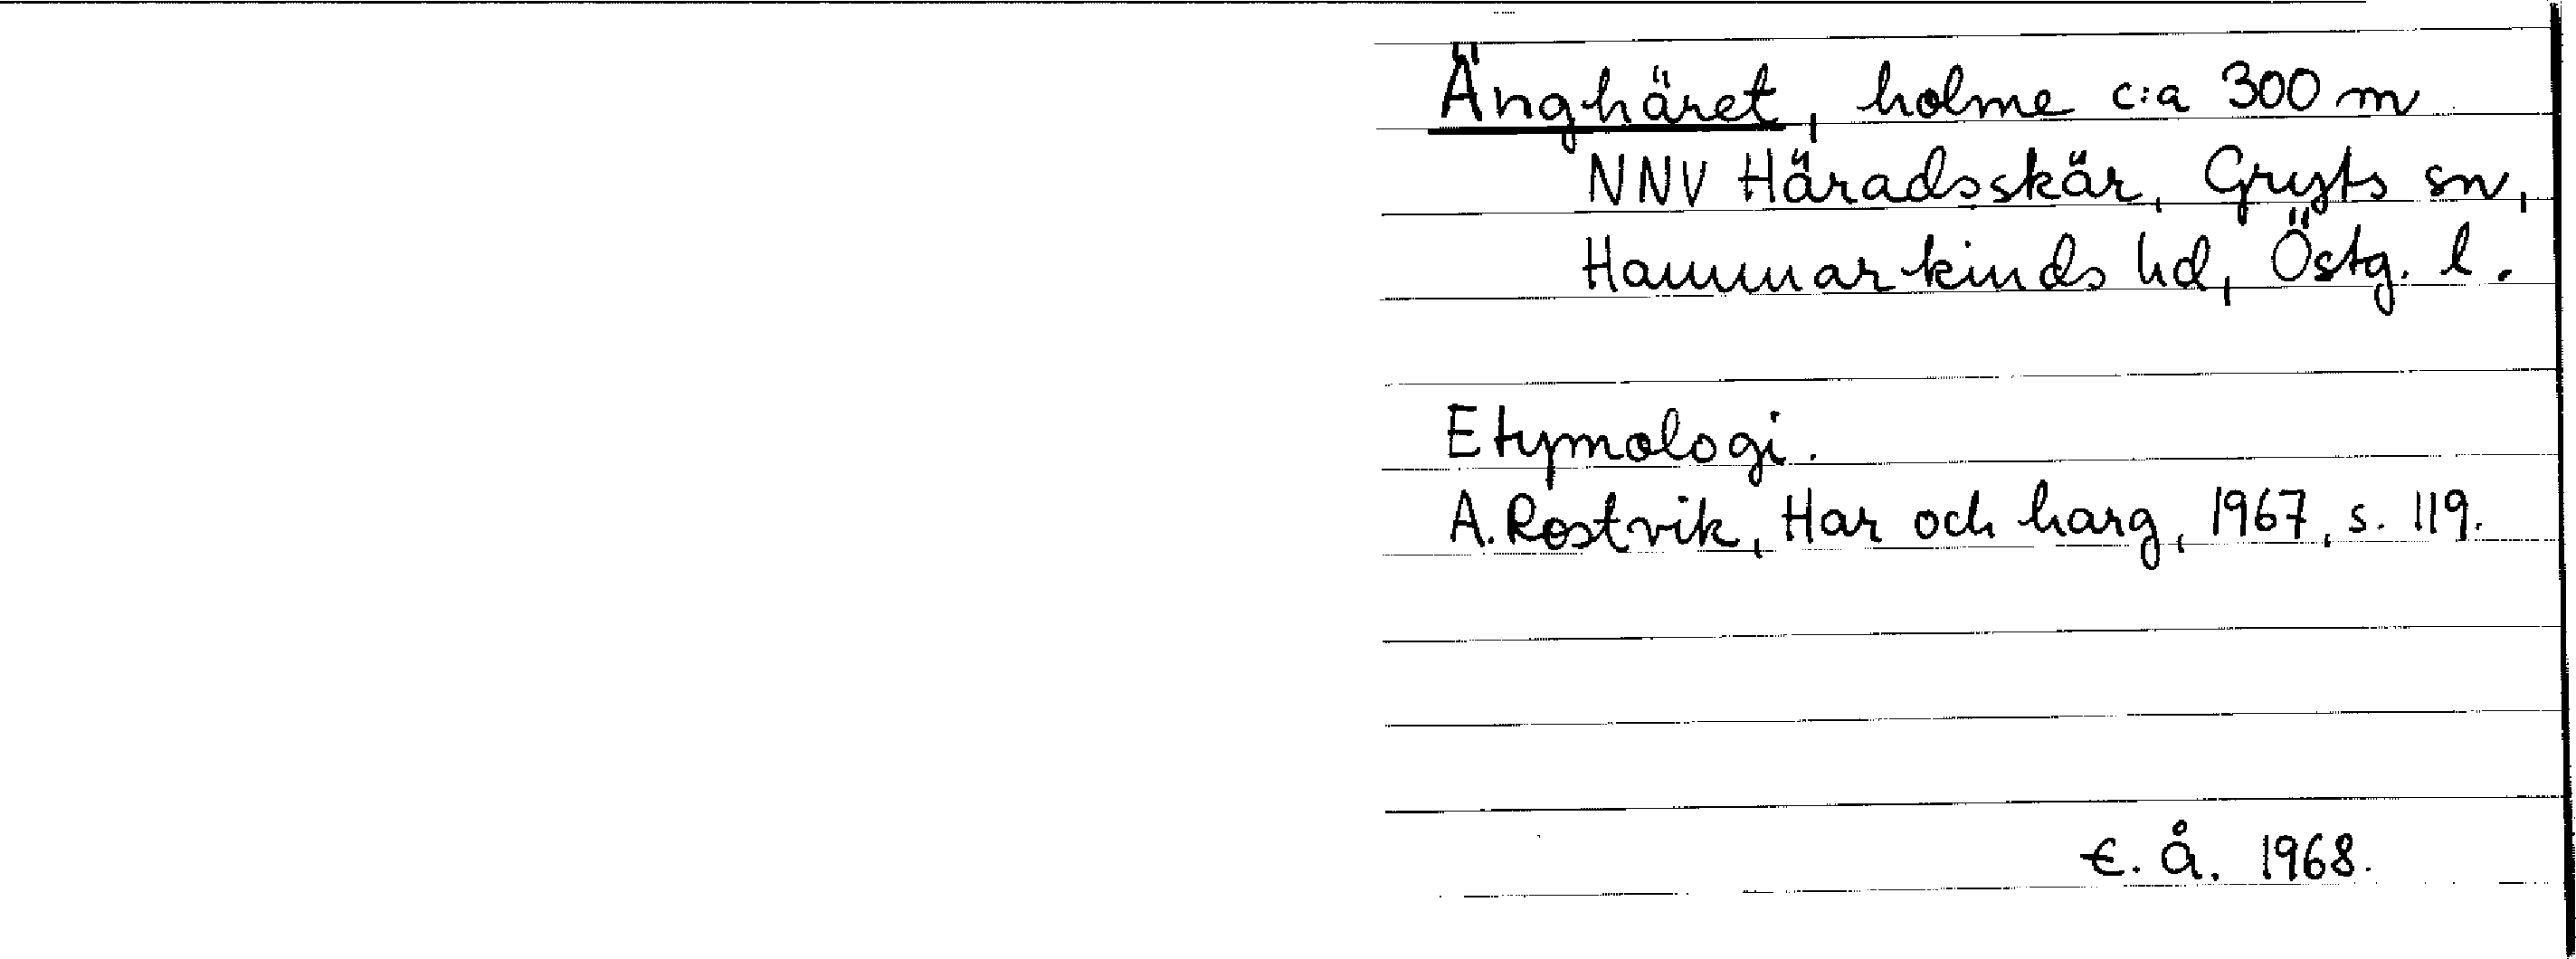 Änghäret, holme c:a 300 m
NNV Häradsskär, Gryts sn,
Hammarkinds hd, Östg. l.
Etymologi.
A. Rostvik, Har och harg, 1967, s. 119.
E. Å. 1968.